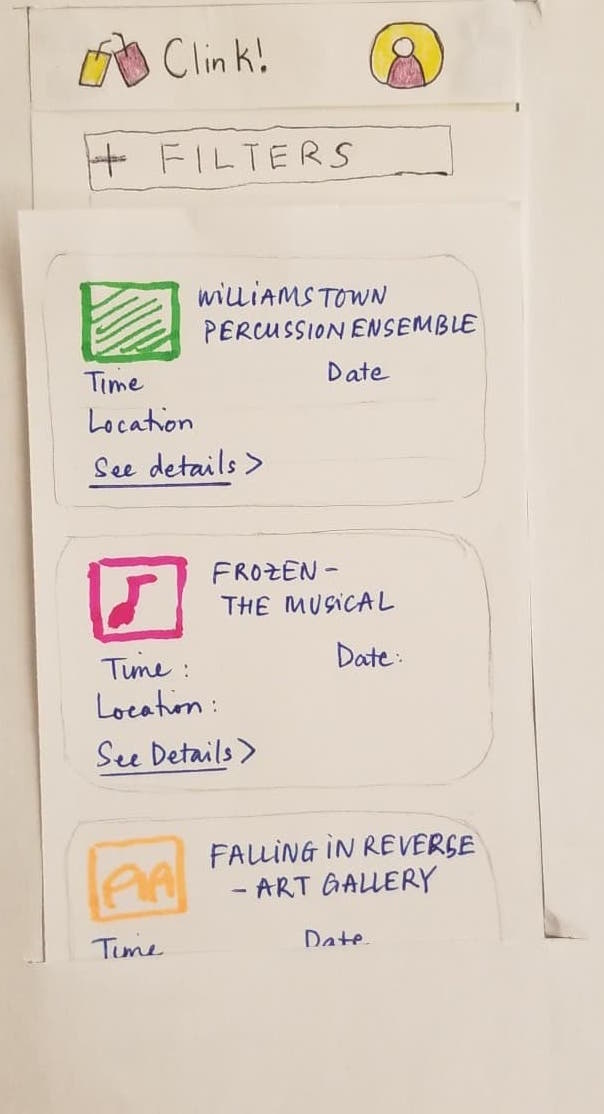 Clink!
+ FILTERS
WILLIAMSTOWN
PERCUSSION ENSEMBLE
Time Date
Location
See details >
FROZEN -
THE MUSICAL
Time : Date:
Location :
See Details >
FALLING IN REVERSE
- ART GALLERY
Time Date